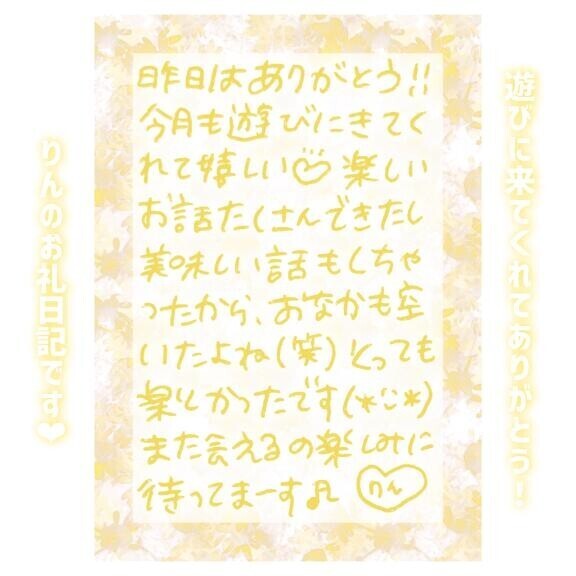 遊びに来てくれてありがとう!
昨日はありがとう!!
今月も遊びにきてく
れて嬉しい♡ 楽しい
お話たくさんできたし
美味しい話もしちゃ
ったから、おなかも空
いたよね(笑)とっても
楽しかったです(*¨*)
また会えるの楽しみに
待ってまーす♪ りん
りんのお礼日記です❤